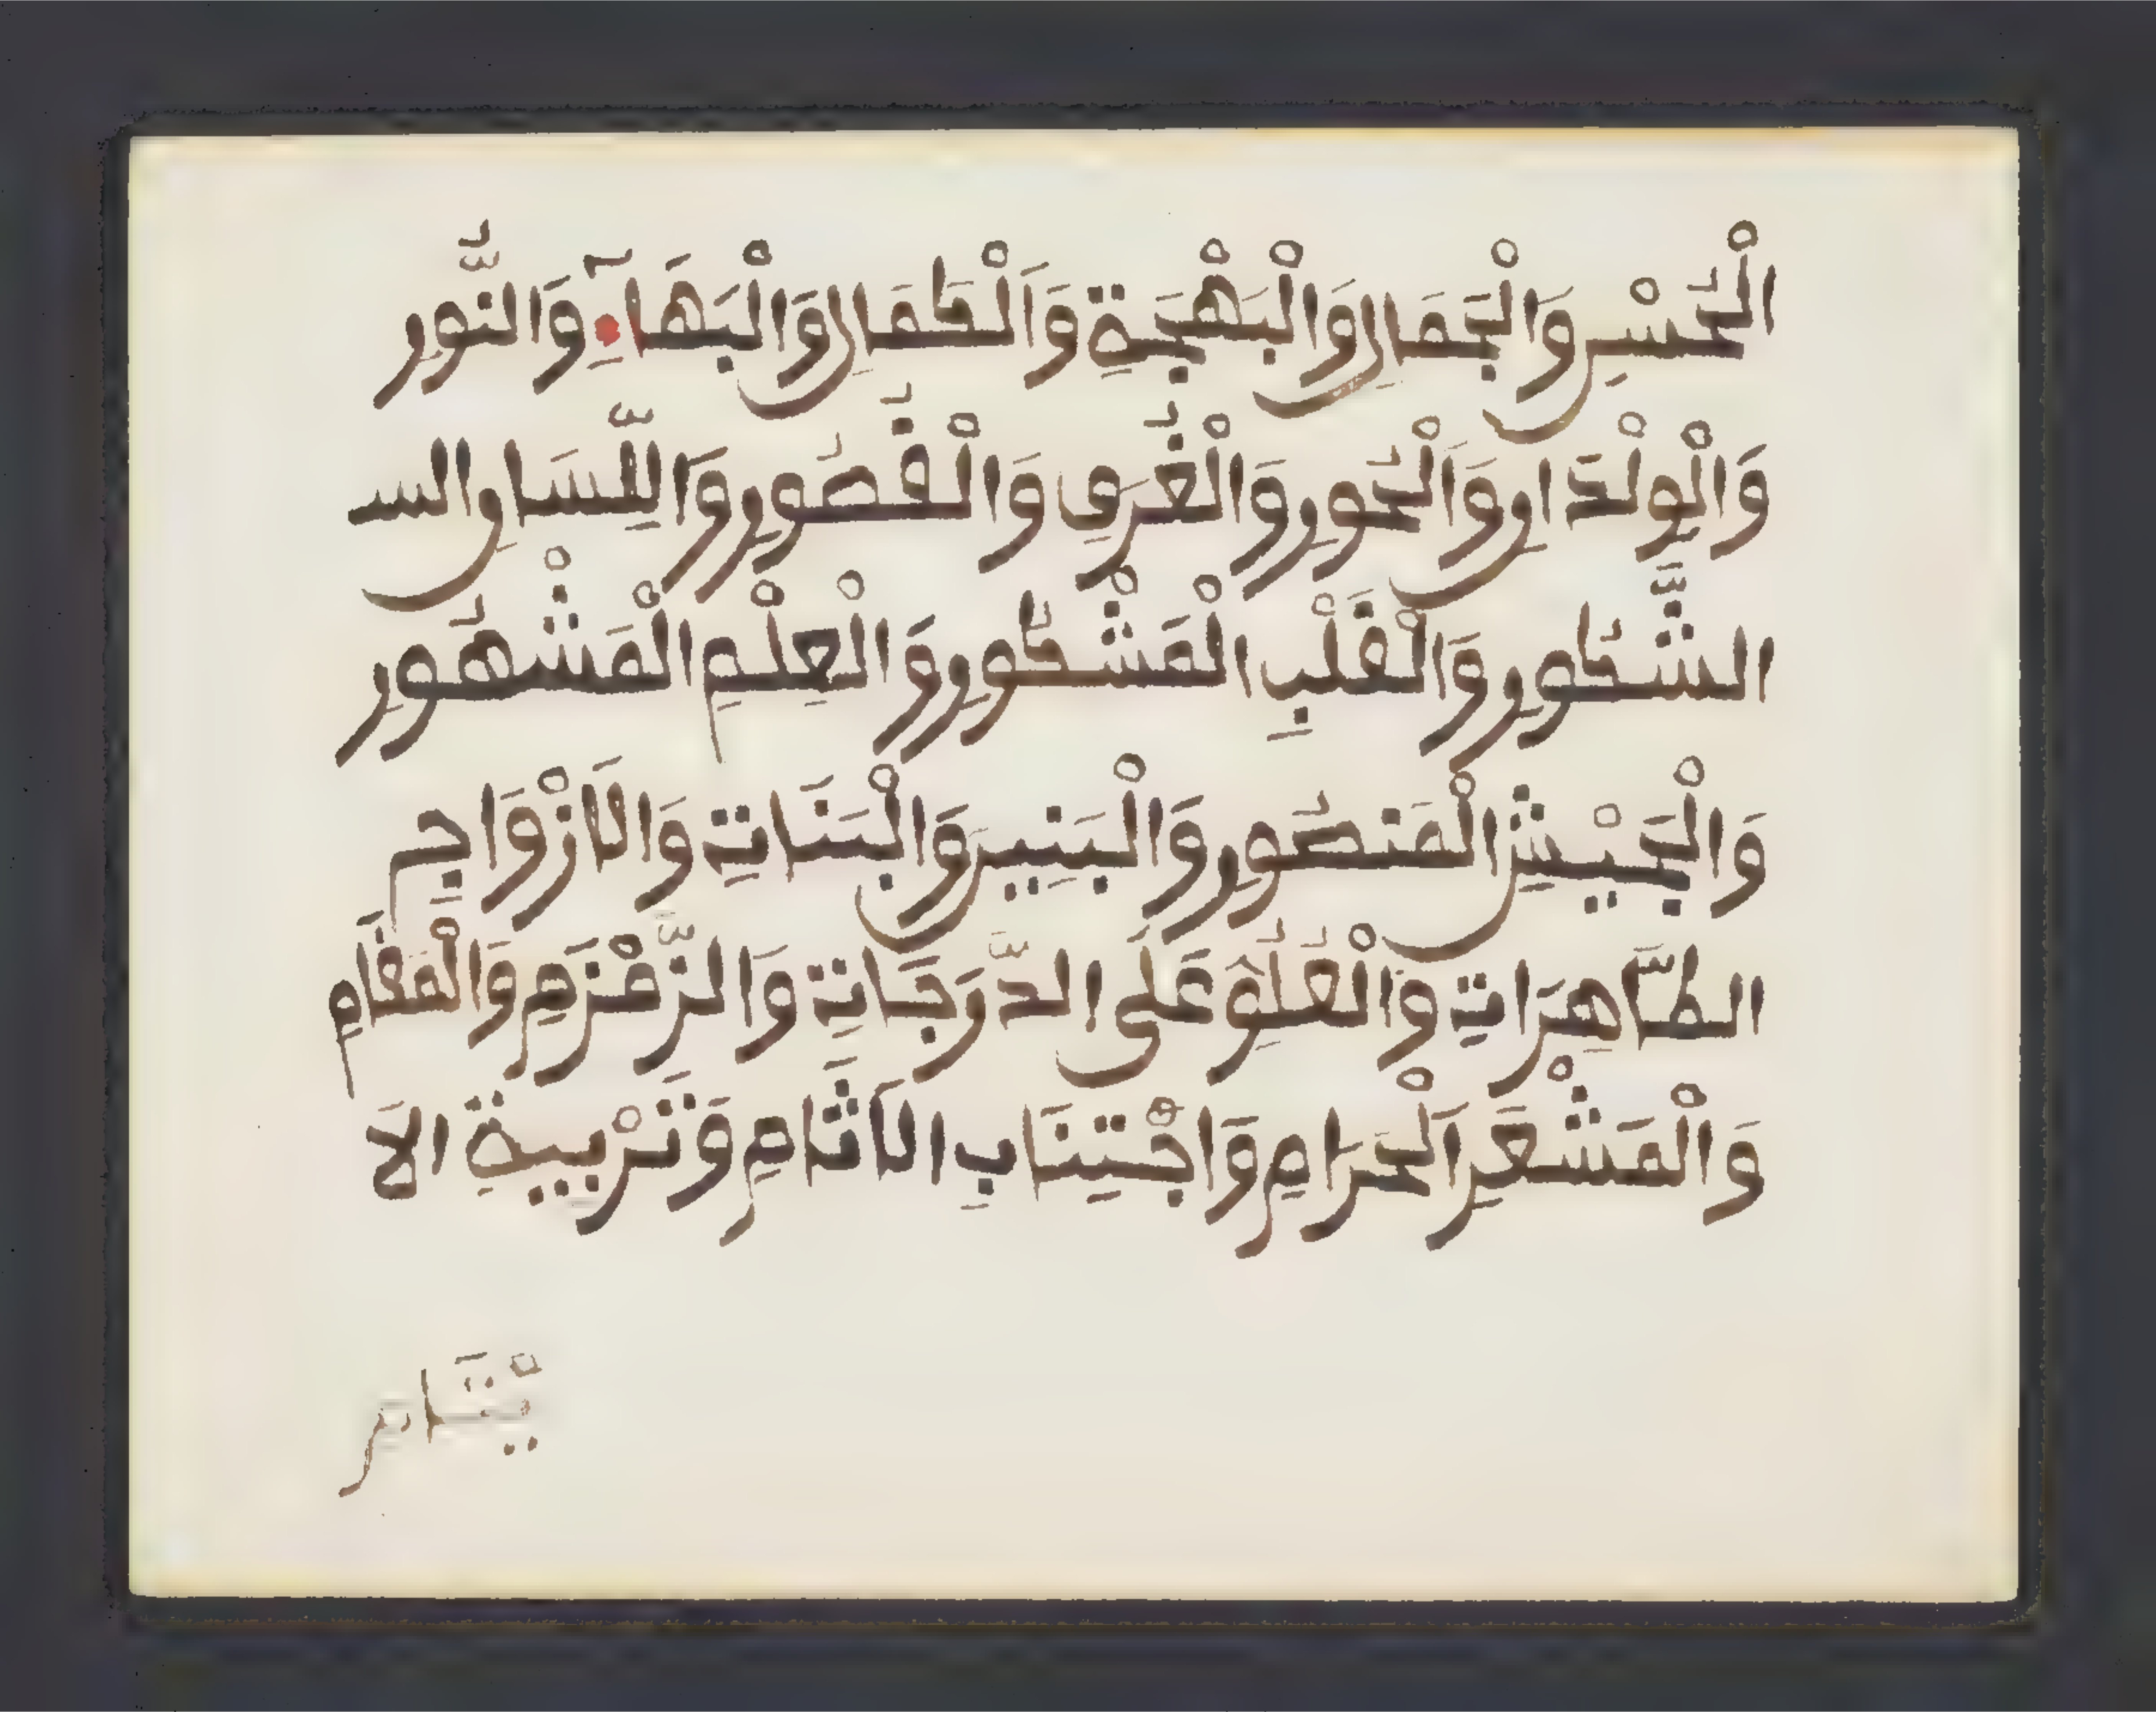 الْحُسْنِ وَالْجَمَالِ وَالْبَهْجَةِ وَالْكَمَالِ وَالْبَهَآءِ وَالنُّورِ
وَالْوِلْدَانِ وَالْحُورِ وَالْغُرَفِ وَالْقُصُورِ وَاللِّسَانِ الس
الشَّكُورِ وَالْقَلْبِ الْمَشْكُورِ وَالْعِلْمِ الْمَشْهُورِ
وَالْجَيْشِ الْمَنصُورِ وَالْبَنِينَ وَالْبَنَاتِ وَالَازْوَاجِ
الطَّاهِرَاتِ وَالْعُلُوِّ عَلَى الدَّرَجَاتِ وَالزَّمْزَمِ وَالْمَقَامِ
وَالْمَشْعَرِ الْحَرَامِ وَاجْتِنَابِ الَاثَامِ وَتَرْبِيَةِ الَا
يْتَامِ